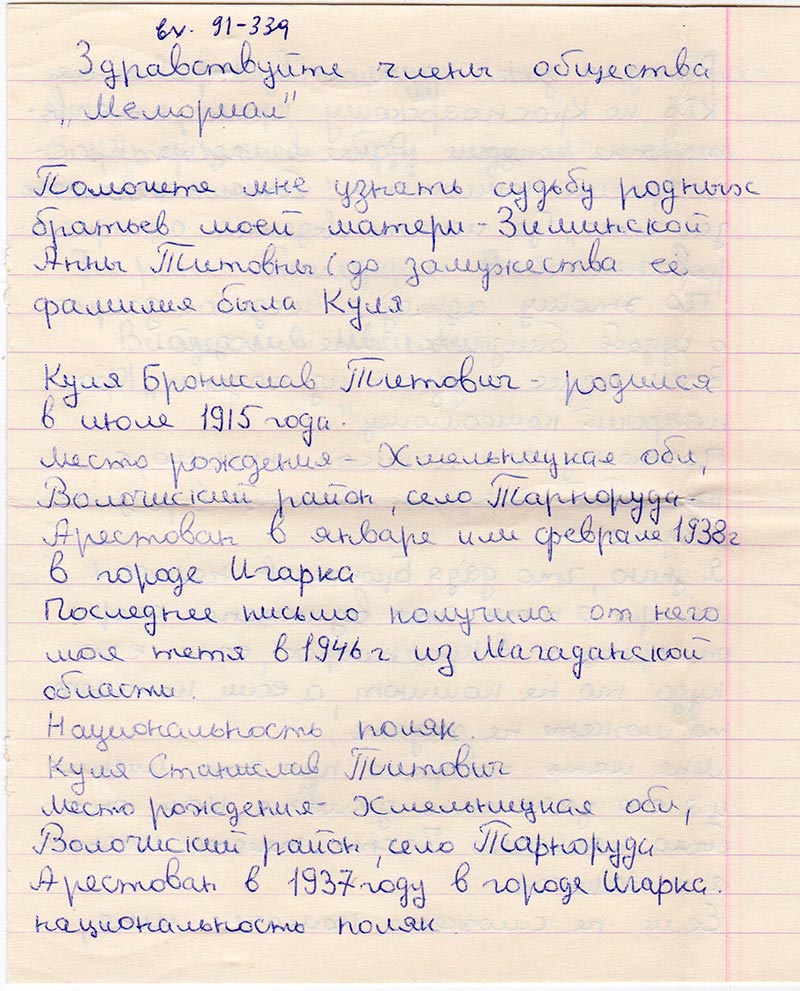 вх. 91-339
Здравствуйте члены общества
"Мемориал"
Помогите мне узнать судьбу родных
братьев моей матери - Зиминской
Анны Титовны (до замужества ее
фамилия была Куля
Куля Бронислав Титович - родился
в июле 1915 года.
Место рождения - Хмельницкая обл,
Волочиский район, село Тарноруда.
Арестован в январе или феврале 1938 г
в городе Игарка
Последнее письмо получила от него
моя тетя в 1946 г из Магаданской
области.
Национальность поляк.
Куля Станислав Титович
Место рождения - Хмельницкая обл,
Волочиский район, село Тарноруда
Арестован в 1937 году в городе Игарка.
национальность поляк.